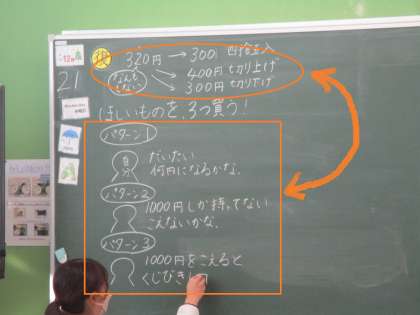 12
21
320円 → 300 四捨五入
なんも
しない
400円 切り上げ
300円 切り下げ
ほしいものを、3つ買う!
パターン1
自分
だいたい
何円になるかな。
パターン2
1000円しか持ってない
こえないかな。
パターン3
1000円をこえると
くじびき